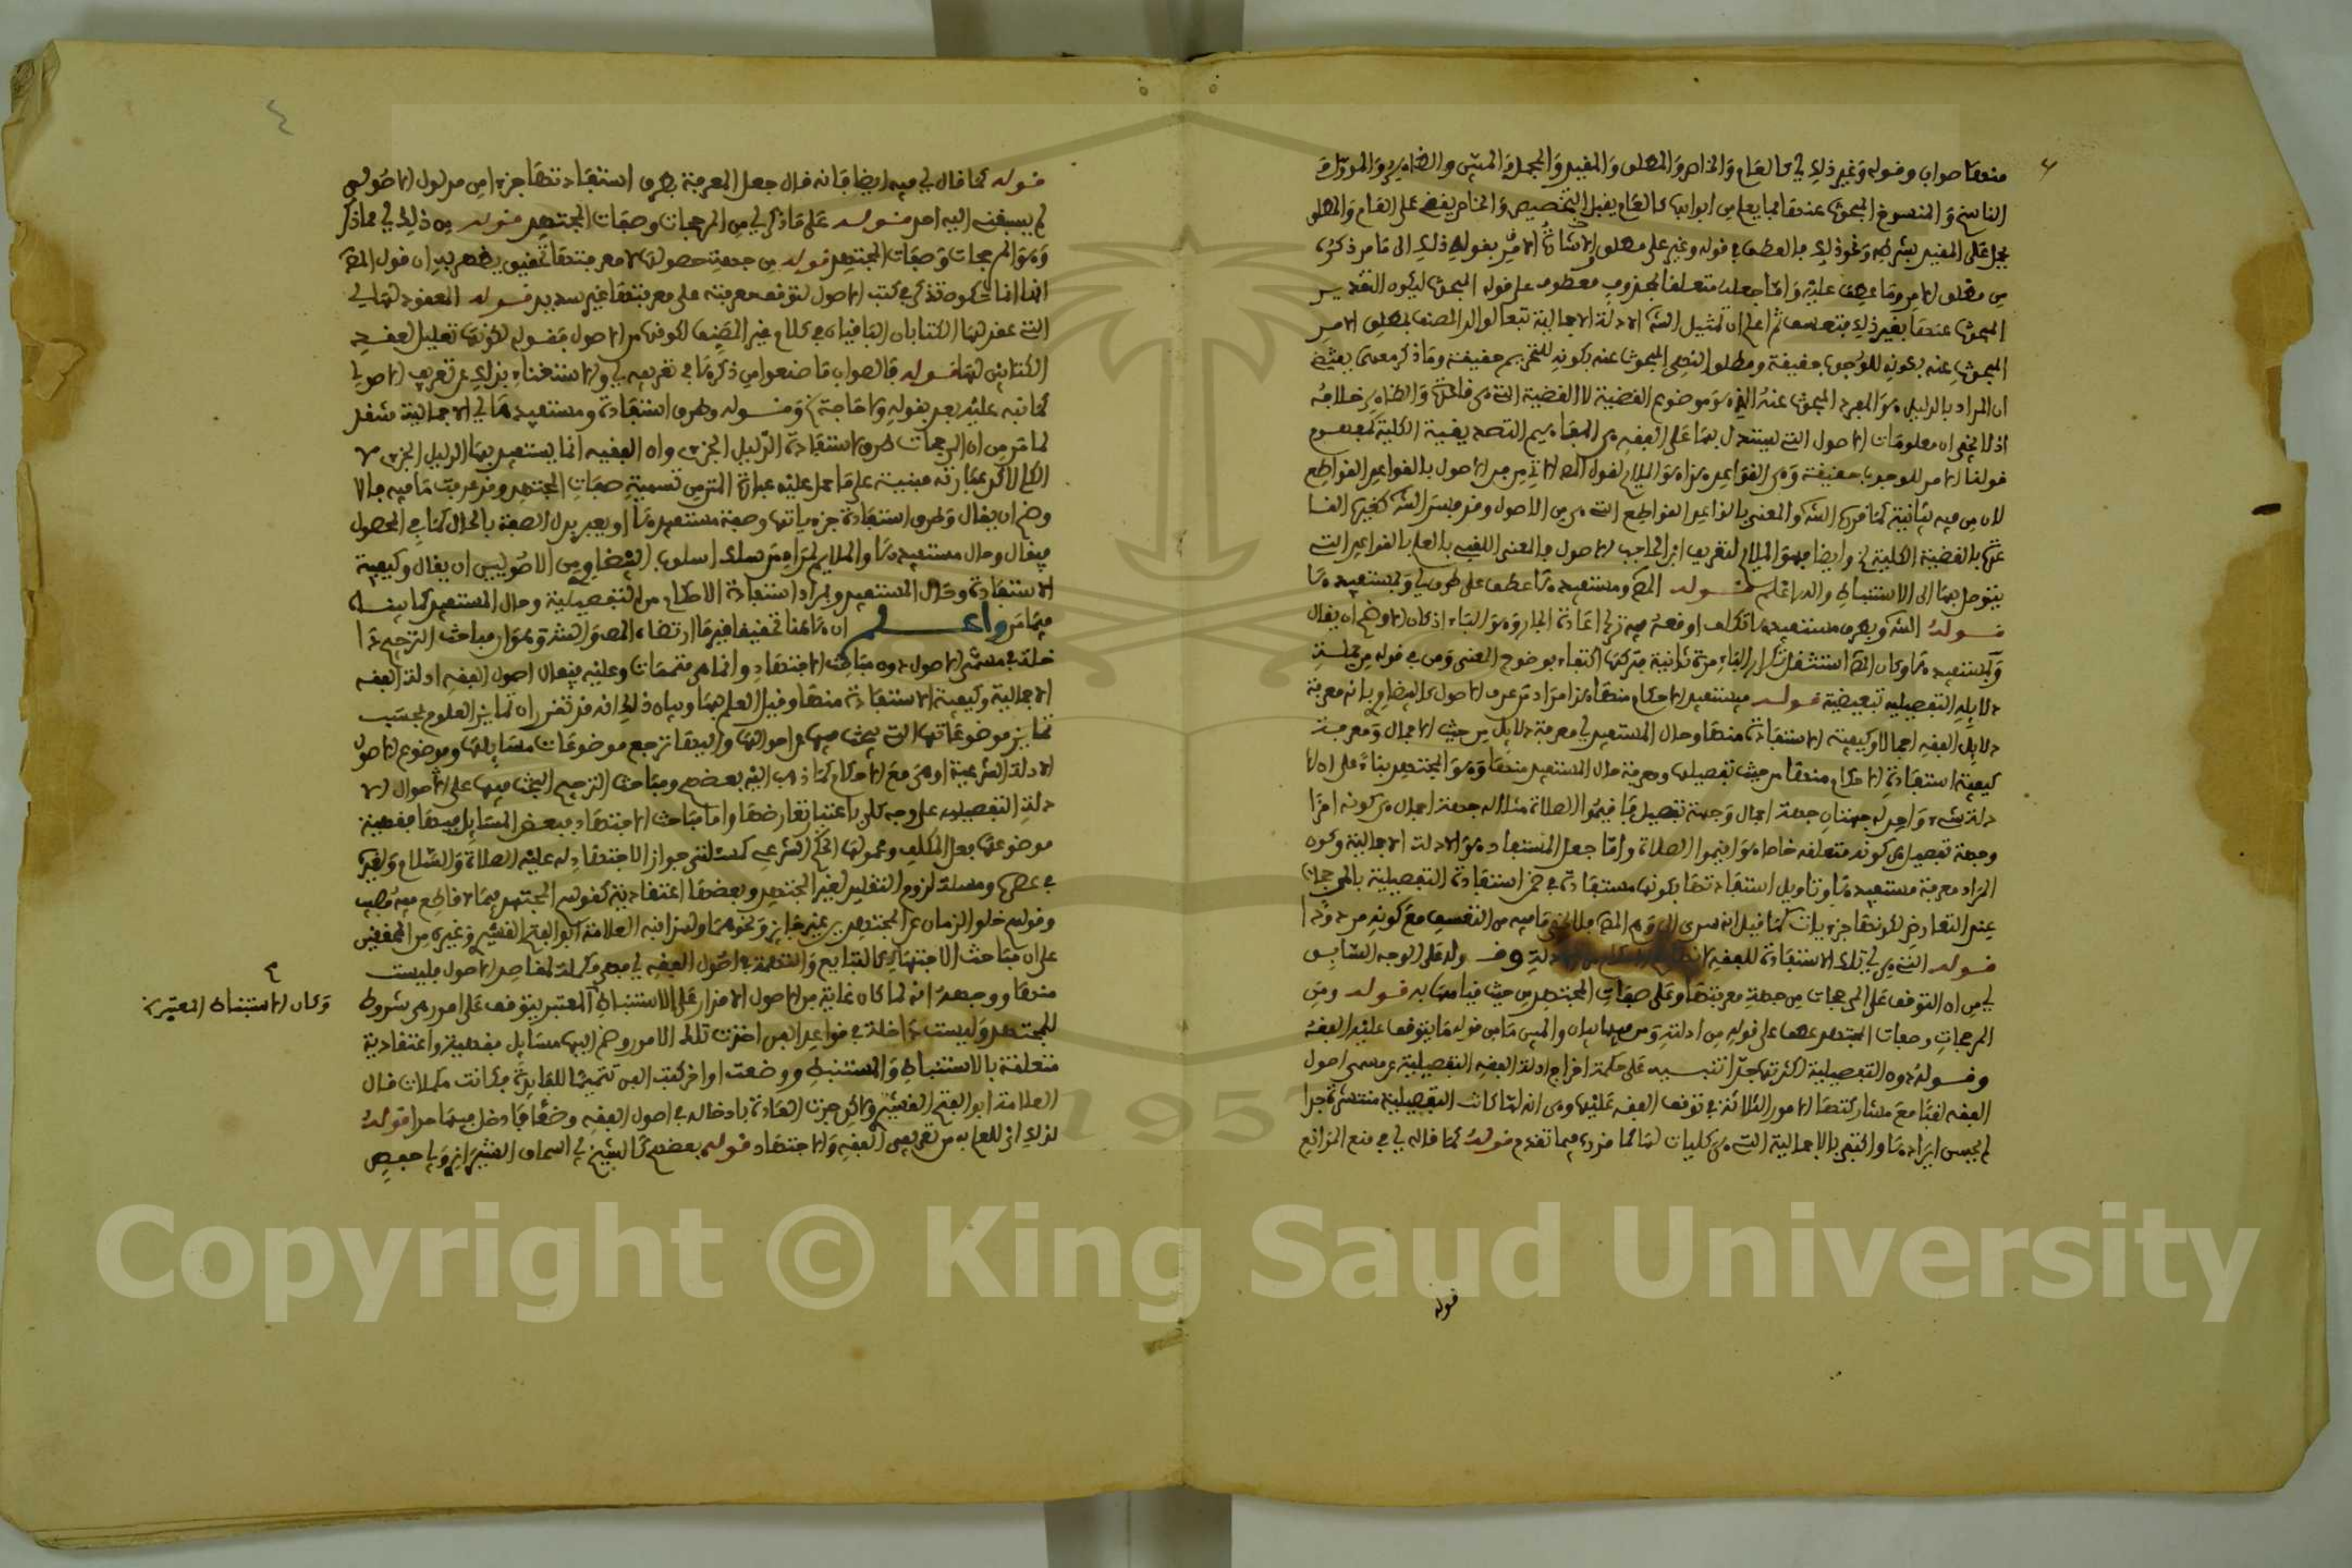 منها صواب وقوله وغير ذلك أي كالعام والخاص والمطلق والمقيد والمجمل والمبين والظاهر والمؤول
الناسخ والمنسوخ المبحوث عنها بما يعلم من ابوابها كالعام يقبل التخصيص والخاص يقضي على العام والمطلق
يحمل على المقيد بشرطه ونحو ذلك فالعطف في قوله وغير على مطلق الاشارة بقوله ذلك الى ما مر ذكره
من مطلق الامر وما عطف عليه واما جعله متعلقا بمحذوف معطوف على قوله المبحوث ليكون التقدير
المبحوث عنها بغير ذلك فتعسف ثم اعلم ان تمثيل الش الادلة الاجمالية تبعا لوالد المصنف بمطلق الامر
المبحوث عنه بكونه للوجوب حقيقة ومطلق النهي المبحوث عنه بكونه للتحريم حقيقة وما ذكر معهما يقتضي
ان المراد بالدليل هو المفرد المبحوث عنه الذي هو موضوع القضية لا القضية الكلية والظاهر خلافه
اذ لا يخفى ان معلومات الاصول التي يستدل بها على الفقه هي المفاهيم التصديقية الكلية كمفهوم
قولنا الامر للوجوب حقيقة وهي القواعد وهذا هو الملايم لقول المص الاتي من فن الاصول بالقواعد القواطع
لان من فيه بيانية كما قررها الش والمعنى بالقواعد القواطع التي هي من الاصول وقد فسر الش كغيره القا
عدة بالقضية الكلية الخ وايضا فهو الملايم لتعريف ابن الحاجب الاصول بالمعنى اللقبي بالعلم بالقواعد التي
يتوصل بها الى الاستنباط والله اعلم قوله المص ومستفيدها عطف على طرق أي وبمستفيدها
قوله الش وبطرق مستفيدها تكلف اوقعه فيه ترك اعادة الجار وهو الباء اذ كان الاوضح ان يقال
وبمستفيدها وكان المص استثقل تكرار الباء مرة ثانية فتركها اكتفاء بوضوح المعنى ومن في قوله من جملة
دلايله التفصيلية تبعيضية قوله فيستفيد الاحكام منها هذا مراد من عرف الاصول كالبيضاوي بانه معرفة
دلايل الفقه اجمالا وكيفية الاستفادة منها وحال المستفيد أي معرفة دلايل من حيث الاجمال ومعرفة
كيفية استفادة الاحكام منها من حيث تفصيلها ومعرفة حال المستفيد منها وهو المجتهد بناء على ان الا
دلة شيء واحد له جهتان جهة اجمال وجهة تفصيل فاقيموا الصلاة مثلا له جهة اجمال هي كونه امرا
وجهة تفصيل هي كونه متعلقه خاصا هو اقيموا الصلاة واما جعل المستفاد هو الادلة الاجمالية وكون
المراد معرفة مستفيدها وتاويل استفادتها بكونها مستفادة في ضمن استفادة التفصيلية بالمرجحات
عند التعارض لكونها جزءيات كما قيل انه سرى الى وهم المص فلا يخفى ما فيه من التعسف مع كونه مردودا
قوله التي هي أي تلك الاستفادة للفقه وقوله على الوجه السابق
أي من ان التوقف على المرجحات من جهة معرفتها وعلى صفات المجتهد من حيث قيامها به قوله ومن
المرجحات وصفات المجتهد عطف على قوله من ادلته ومن فيها بيان والمبين ما من قوله ما يتوقف عليه الفقه
وقوله دون التفصيلية لكثرتها جدا تنبيه على حكمة اخراج ادلة الفقه التفصيلية عن مسمى اصول
الفقه لقبا مع مشاركتها الامور الثلاثة في توقف الفقه عليها وهي انه لما كانت التفصيلية منتشرة جدا
لم يحسن ايرادها واكتفى بالاجمالية التي هي كليات لها كما قررته فيما تقدم قوله كما قاله أي في منع الموانع
قوله
قوله كما قال أي فيه ايضا فانه قال جعل المعرفة بطرق استفادتها جزءا من مدلول الاصولي
لم يسبقني اليه احد قوله على ما ذكر أي من المرجحات وصفات المجتهد قوله من ذلك أي مما ذكر
وهو المرجحات وصفات المجتهد قوله من جهة حصولها لا معرفتها تحقيق يظهر به ان قول المص
انها انما تذكر في كتب الاصول لتوقف معرفته على معرفتها غير سديد قوله المعقود لها أي
التي عقد لها الكتابان الباقيان في كلام غير المصنف لكونها من الاصول فقوله لكونها تعليل لعقد
الكتابين لها قوله فالصواب ما صنعوا من ذكرها في تعريفيه أي والاستغناء بذلك عن تعريف الاصولي
كما نبه عليه بعد بقوله ولا حاجة الخ وقوله وطرق استفادة ومستفيدها أي الاجمالية سقط
لما مر من ان المرجحات طرق لاستفادة الدليل الجزءي وان الفقيه انما يستفيد بها الدليل الجزءي لا
الكلي لاكن عبارته مبنية على ما حمل عليه عبارة المتن من تسمية صفات المجتهد وقد عرفت ما فيه فالا
وضح ان يقال وطرق استفادة جزءياتها وصفة مستفيدها او يعبر بدل الصفة بالحال كما في المحصول
فيقال وحال مستفيدها والملايم لمرام من سلك اسلوب البيضاوي من الاصوليين ان يقال وكيفية
الاستفادة وحال المستفيد والمراد استفادة الاحكام من التفصيلية وحال المستفيد كما بيناه
فيما مر واعلم ان هاهنا تحقيقا غير ما ارتضاه المص والش وهو ان مباحث الترجيح دا
خلة في مسمى الاصول دون مباحث الاجتهاد وانما هي متممات وعليه فيقال اصول الفقه ادلة الفقه
الاجمالية وكيفية الاستفادة منها وقيل العلم بهما وبيان ذلك انه قد تقرر ان تمايز العلوم بحسب
تمايز موضوعاتها التي يبحث فيها عن احوالها واليها ترجع موضوعات مسايلها وموضوع الاصول
الادلة الشرعية او هي مع الاحكام كما ذهب اليه بعضهم ومباحث الترجيح البحث فيها على احوال الا
دلة التفصيلية على وجه كلي باعتبار تعارضها واما مباحث الاجتهاد فبعض المسايل فيها فقهية
موضوعها فعل المكلف ومحمولها الحكم الشرعي كمسئلتي جواز الاجتهاد له عليه الصلاة والسلام ولغيره
في عصره ومسئلة لزوم التقليد لغير المجتهد وبعضها اعتقادية كقولهم المجتهد فيما لا قاطع فيه مصيب
وقولهم خلو الزمان عن المجتهدين غير جايز ونحوهما ولهذا نبه العلامة ابو الفتح القشيري وغيره من المحققين
على ان مباحث الاجتهاد كالتابع والتتمة في اصول الفقه أي فهي مكملة لمقاصد الاصول فليست
منها ووجهه انه لما كان غاية من الاصول الاقدار على الاستنباط المعتبر يتوقف على امور هي شروط
للمجتهد وليست داخلة في قواعد الفن اخذت تلك الامور وضم اليها مسايل فقهية واعتقادية
متعلقة بالاستنباط والمستنبط ووضعت اواخر كتب الفن تتميما للفايدة فكانت مكملات قال
العلامة ابو الفتح القشيري ولاكن جرت العادة بادخاله في اصول الفقه وضعا فادخل فيها حدا قوله
لذلك أي للعلم به من تعريفي الفقه والاجتهاد قوله بعضهم كالشيخ أبي اسحاق الشيرازي وأبي حفص
وكان الاستنباط المعتبر
Copyright © King Saud University
1957